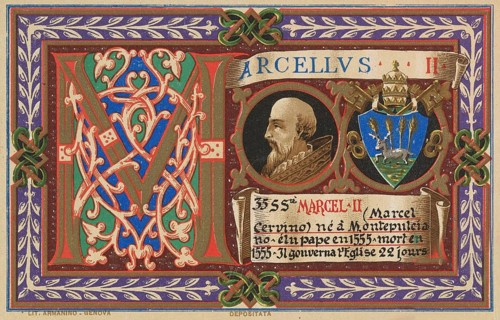 MARCELLVS II
35 SS MARCEL · II
(Marcel
Cervino) né à Montepulcia
no · élu pape en 1555 · mort en
1555 · Il gouverna l'Eglise 22 jours
LIT. ARMANINO - GENOVA
DEPOSITATA